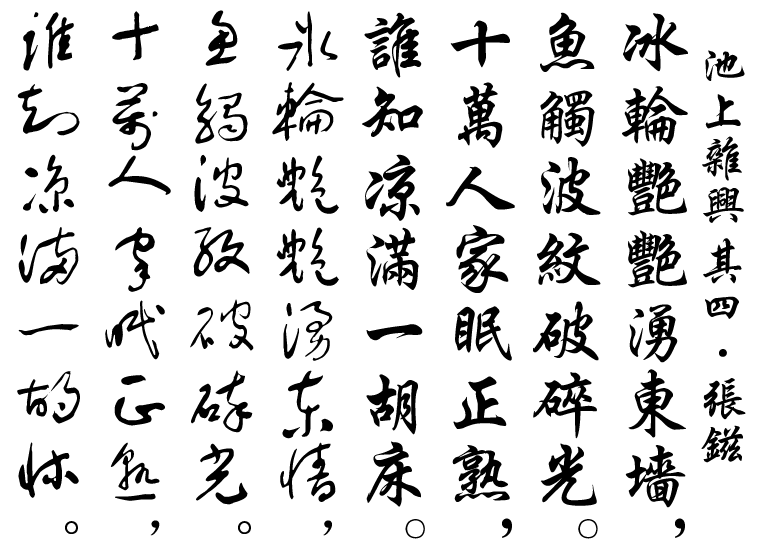 池上雜興其四・張鎡
冰輪艷艷湧東墻，
魚觸波紋破碎光。
十萬人家眠正熟，
誰知凉滿一胡床。
冰輪艷艷湧東墻，
魚觸波紋破碎光。
十萬人家眠正熟，
誰知凉滿一胡床。